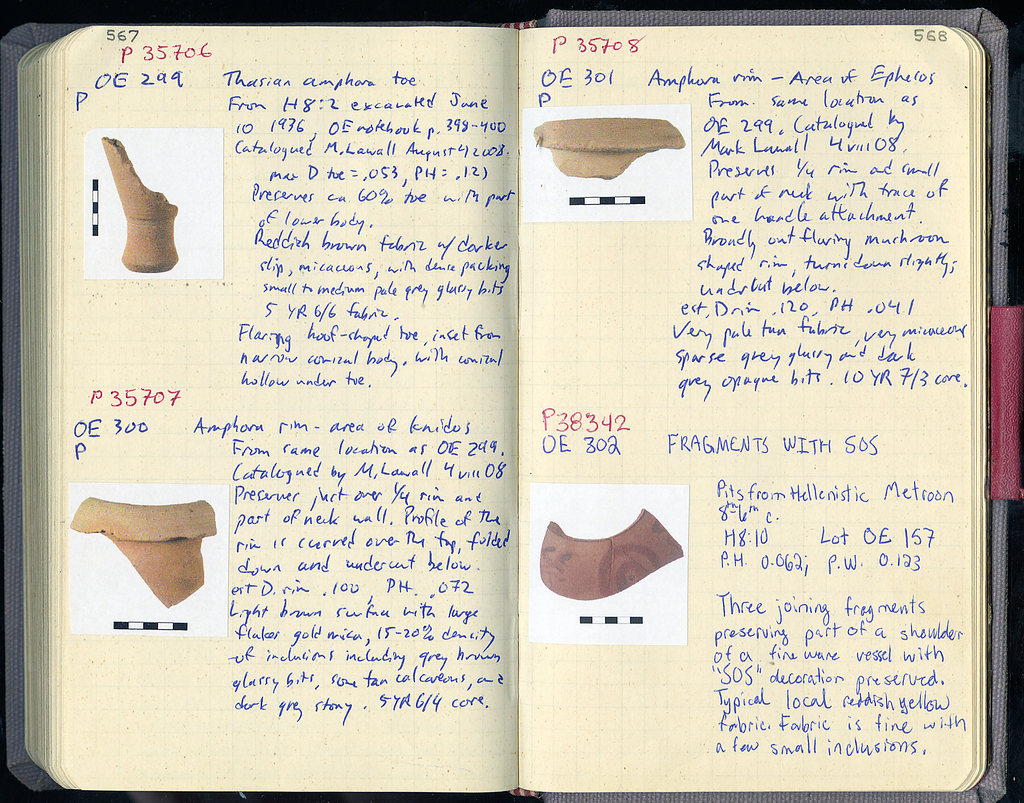 567
P 35706
OE 299 Thasian amphora toe
P
From H8:2 excavated June
10 1936, OE notebook p. 399-400
Catalogued M. Lawall August 4 2008.
max D toe = .053, PH = .121
Preserves ca 60% toe with part
of lower body.
Reddish brown fabric w/ darker
slip, micaceous, with dense packing
small to medium pale grey glassy bits
5 YR 6/6 fabric.
Flaring hoof-shaped toe, inset from
narrow conical body, with conical
hollow under toe.
P 35707
OE 300 Amphora rim - area of Knidos
P
From same location as OE 299.
Catalogued by M. Lawall 4 viii 08
Preserves just over 1/4 rim and
part of neck wall. Profile of the
rim is curved over the top, folded
down and undercut below.
est D. rim .100, PH. .072
Light brown surface with large
flakes gold mica, 15-20% density
of inclusions including grey brown
glassy bits, some tan calcareous, and
dark grey stony. 5YR 6/4 core.
568
P 35708
OE 301 Amphora rim - Area of Ephesos
P
From same location as
OE 299. Catalogued by
Mark Lawall 4 viii 08.
Preserves 1/4 rim and small
part of neck with trace of
one handle attachment.
Broadly out flaring mushroom
shaped rim, turns down slightly;
undercut below.
est. D rim .120, PH .041
Very pale tan fabric, very micaceous
sparse grey glassy and dark
grey opaque bits. 10 YR 7/3 core.
P38342
OE 302 FRAGMENTS WITH SOS
Pits from Hellenistic Metroon
8th-6th c.
H8:10 Lot OE 157
P.H. 0.062; p.W. 0.123
Three joining fragments
preserving part of a shoulder
of a fine ware vessel with
"SOS" decoration preserved.
Typical local reddish yellow
fabric. Fabric is fine with
a few small inclusions.